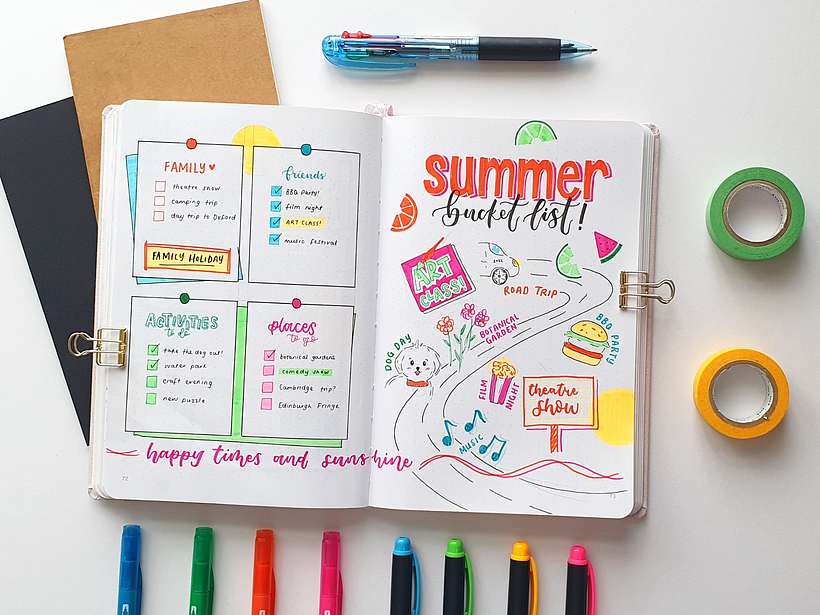 FAMILY
theatre show
camping trip
day trip to Oxford
FAMILY HOLIDAY
friends
BBQ Party!
film night
ART CLASS!
music festival
ACTIVITIES
to do
take the dog out!
water park
craft evening
new puzzle
places
to go
botanical gardens
comedy show
Cambridge trip?
Edinburgh Fringe
happy times and sunshine
72
summer
bucket list!
ART
CLASS!
ROAD TRIP
BOTANICAL
GARDEN
DOG DAY
BBQ
PARTY
FILM
NIGHT
theatre
show
MUSIC
73